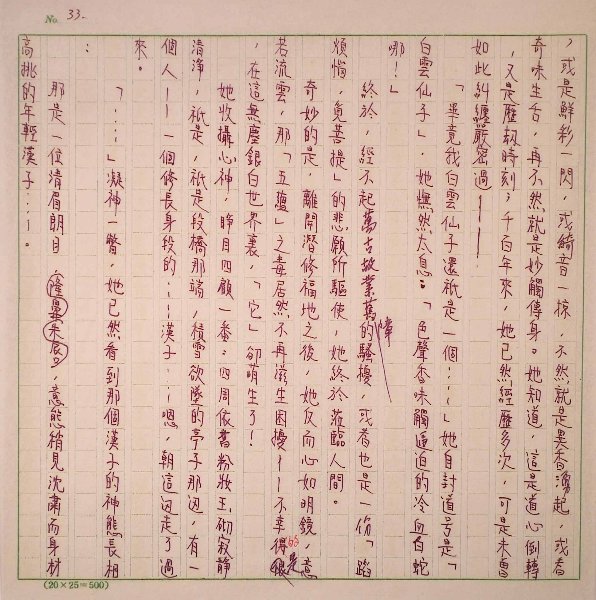 No. 33.
，或是鮮彩一閃，或綺音一掠，不然就是異香湧起，或者
奇味生舌，再不然就是妙觸傳身。她知道，這是道心倒轉
，又是歷劫時刻；千百年來，她已然經歷多次，可是未曾
如此糾纏嚴密過——
「畢竟我白雲仙子還祇是一個……」她自封道号是「
白雲仙子」，她憮然太息：「色聲香味觸逼迫的冷血白蛇
哪！」
終於，經不起萬古故業舊障的騷擾，或者也是一份「蹈
煩惱，覓菩提」的悲願所驅使，她終於蒞臨人間。
奇妙的是，離開潛修福地之後，她反而心如明鏡，意
若流雲，那「五蘊」之毒居然不再滋生困擾——不幸的是
，在這無塵銀白世界裏，「它」卻萌生了！
她收攝心神，睜目四顧一番：四周依舊粉妝玉砌寂靜
清淨，祇是，祇是段橋那端，積雪欲墜的亭子那邊，有一
個人——一個修長身段的……漢子……嗯，朝這邊走了過
來。
「……」凝神一瞥，她已然看到那個漢子的神態長相
：
那是一位清眉朗目，隆鼻朱唇，意態稍見沈肅而身材
高挑的年輕漢子……。
(20×25=500)